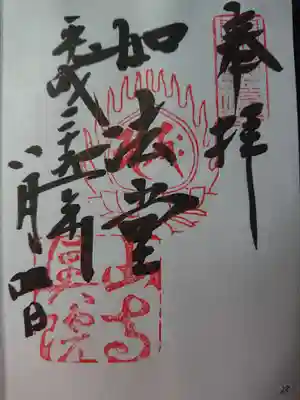 奉拝
如法堂
平成二十五年
八月四日
山寺
奥院